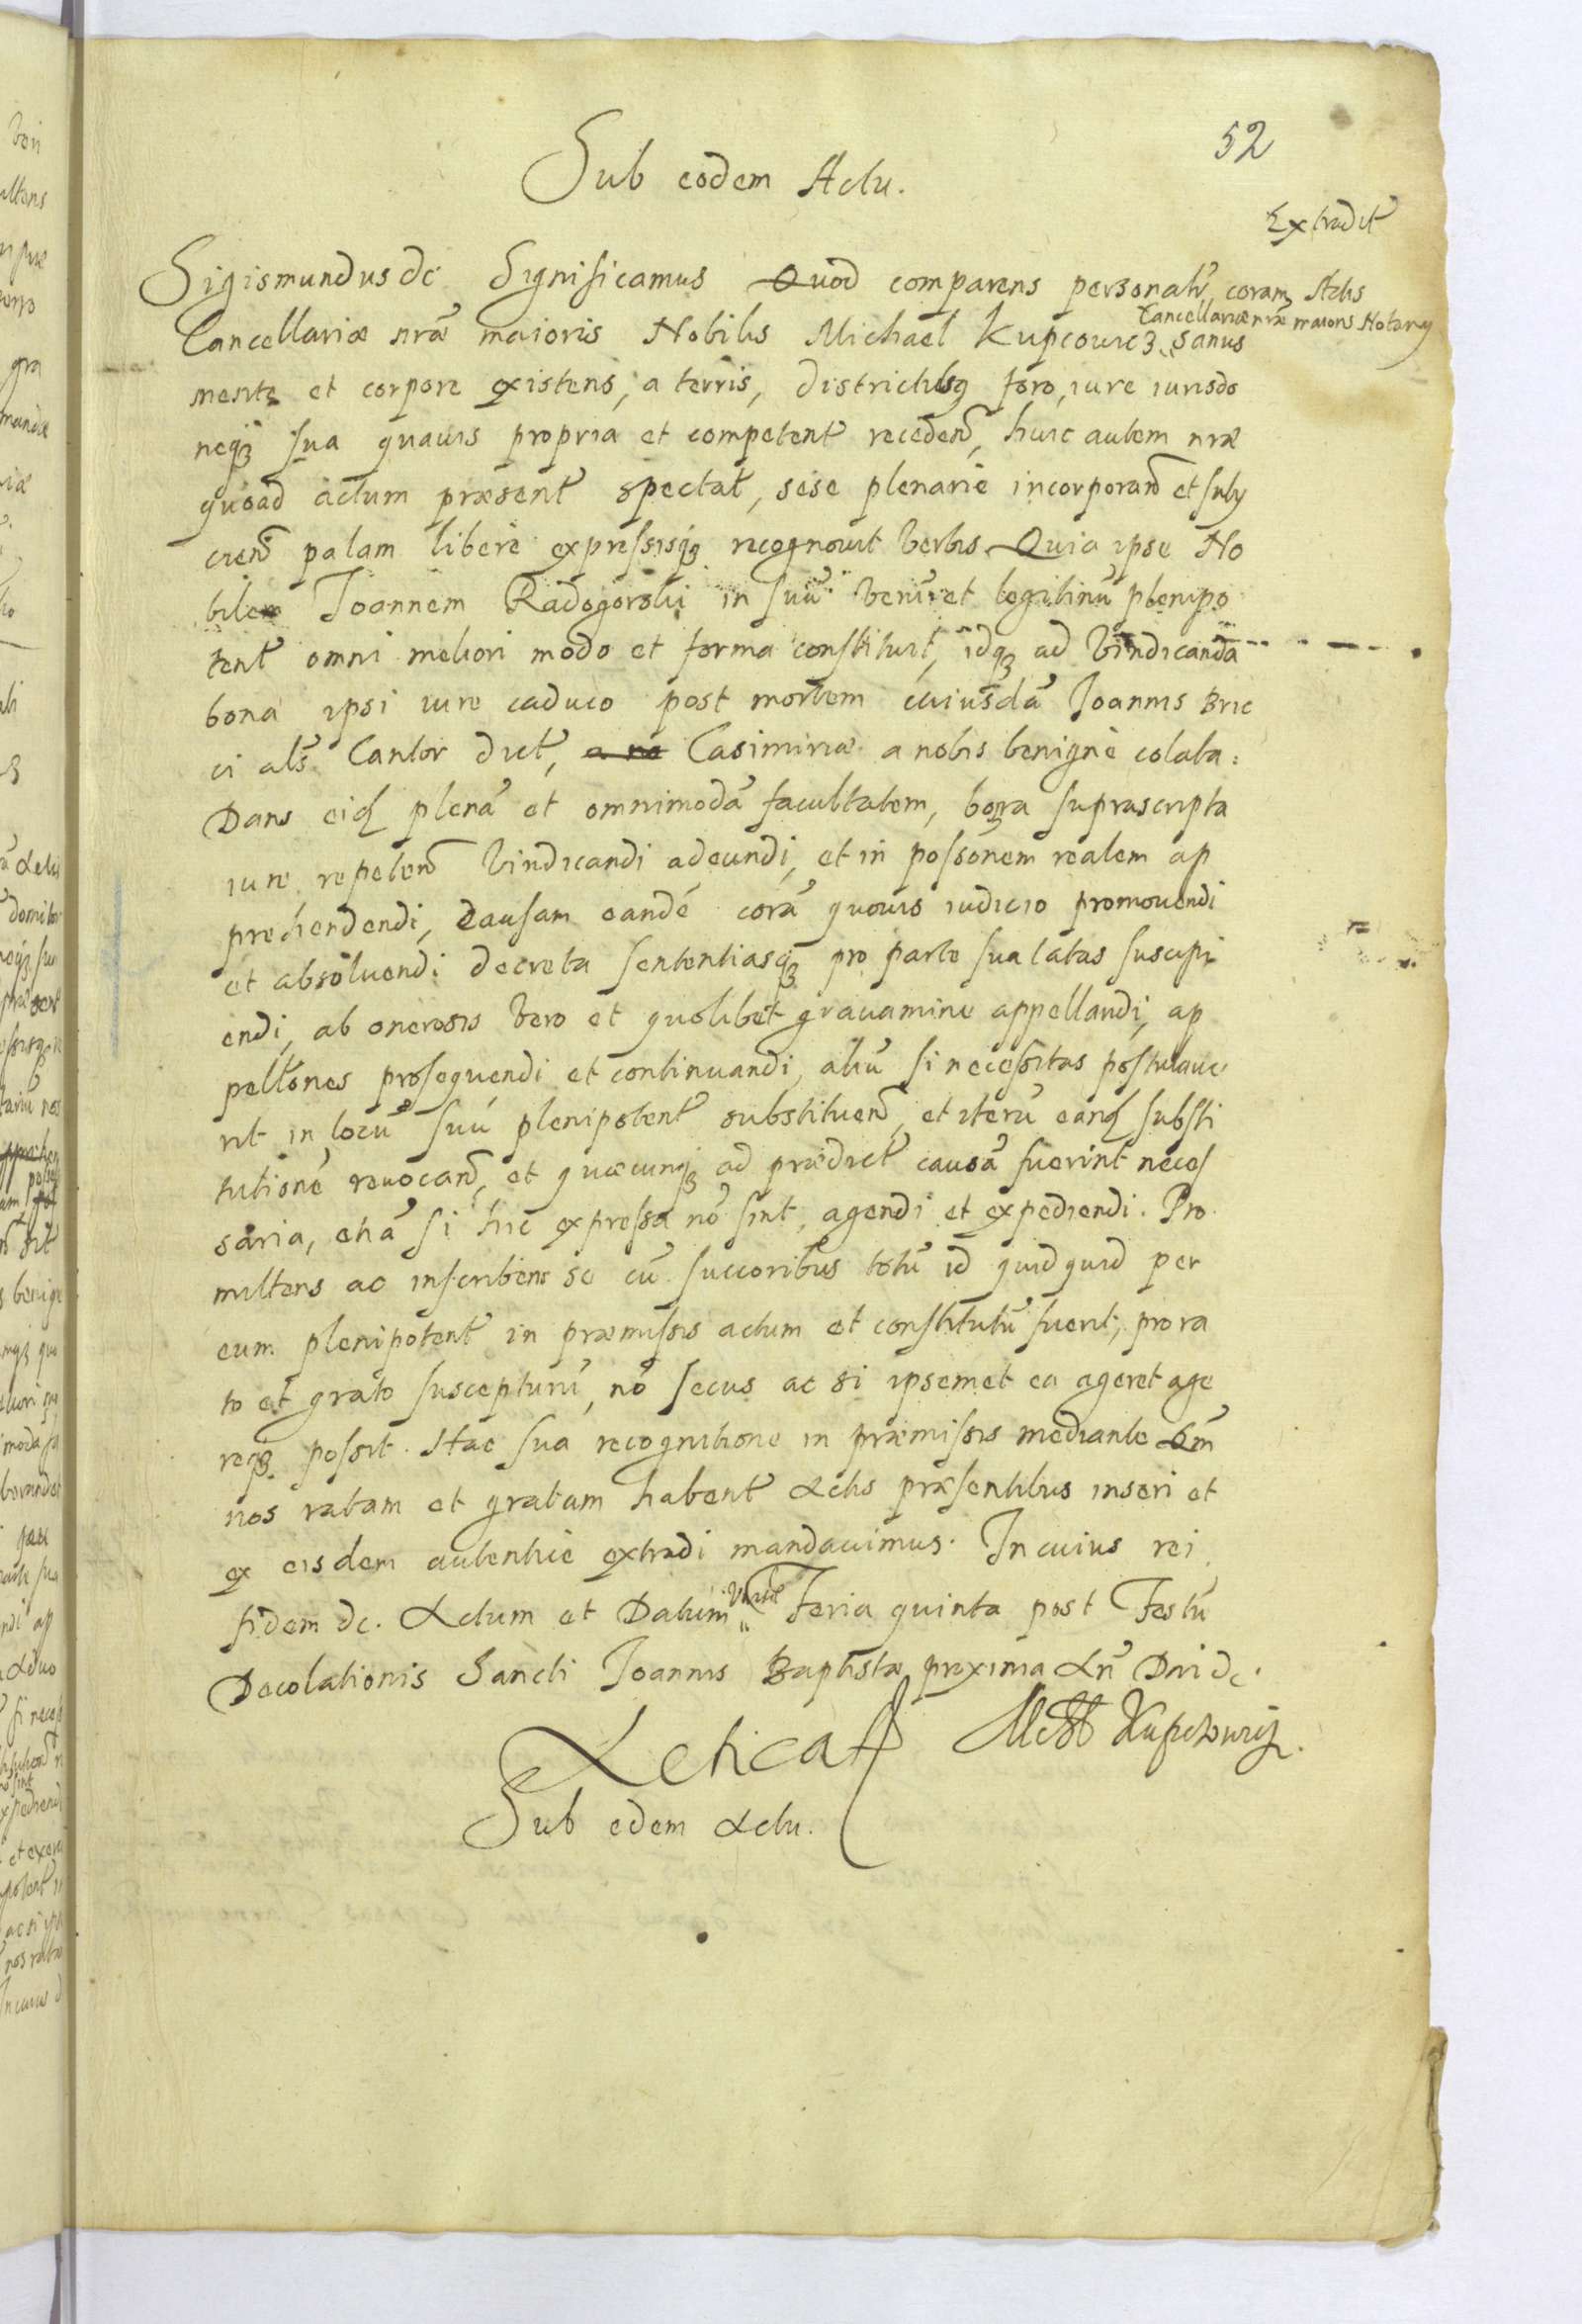 52
Sub eodem Actu.
Extradit
Sigismundus dc Significamus Quod comparens personalr, coram Actis
Cancellariæ nræ maioris Notary
Cancellariæ nræ maioris Nobilis Michael Kupcowicz sanus
mente et corpore existens, a terris, districtibsq foro, iure iurisdo
neq sua quavis propria et competent recedend, huic autem nræ
quoad actum præsent spectat, sese plenarie incorporand et subij
ciend palam libere expressisq recognovit verbis Quia ipse No
bilem Joannem Radogorski in suu veru et legitimu plenipo
tent omni meliori modo et forma constituit, idq ad vindicanda
bona ipsi iure caduco post mortem cuiusda Joannis Bric
ci als Cantor dict, Casimiriæ a nobis benigne colata:
Dans eid plena et omnimoda facultatem, bona suprascripta
iure repetend vindicandi adeundi, et in possonem realem ap
prehendendi, causam eande cora quovis iudicio promovendi
et absolvendi decreta sententiasq pro parte sua latas suscipi
endi, ab onerosis vero et quolibet gravamine appellandi, ap
pellones prosequendi et continuandi, aliu si necessitas postulave
rit in locu suu plenipotent substituend, et iteru eand substi
tutione revocand, et quæcunq ad prædict causa fuerint neces
saria, etia si hic expressa no sint, agendi et expediendi. Pro
mittens ac inscribens se cu succoribus totu id quidquid per
eum plenipotent in præmissis actum et constitutu fuerit, pro ra
to et grato suscepturu, no secus ac si ipsemet ea ageret age
req possit. Hac sua recognitione in præmissis mediante Qm
nos ratam et gratam habent Actis præsentibus inseri et
ex eisdem autentice extradi mandavimus. In cuius rei
fidem dc. Actum et Datum Varsæ Feria quinta post Festu
Decolationis Sancti Joannis Baptistæ proxima An Dni dc.
Kupcowicz.
Sub edem Actu.